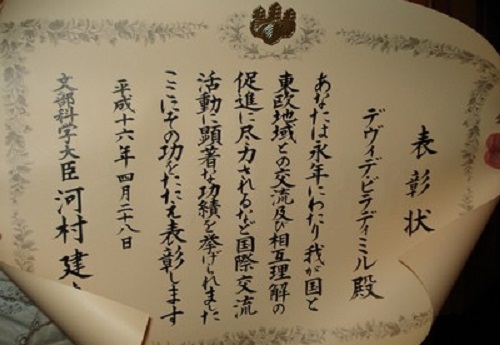 表彰状
デヴィデ・ビラディミル殿
あなたは永年にわたり我が国と
東欧地域との交流及び相互理解の
促進に尽力されるなど国際交流
活動に顕著な功績を挙げられました
ここにその功をたたえ表彰します
平成十六年四月二十八日
文部科学大臣 河村建